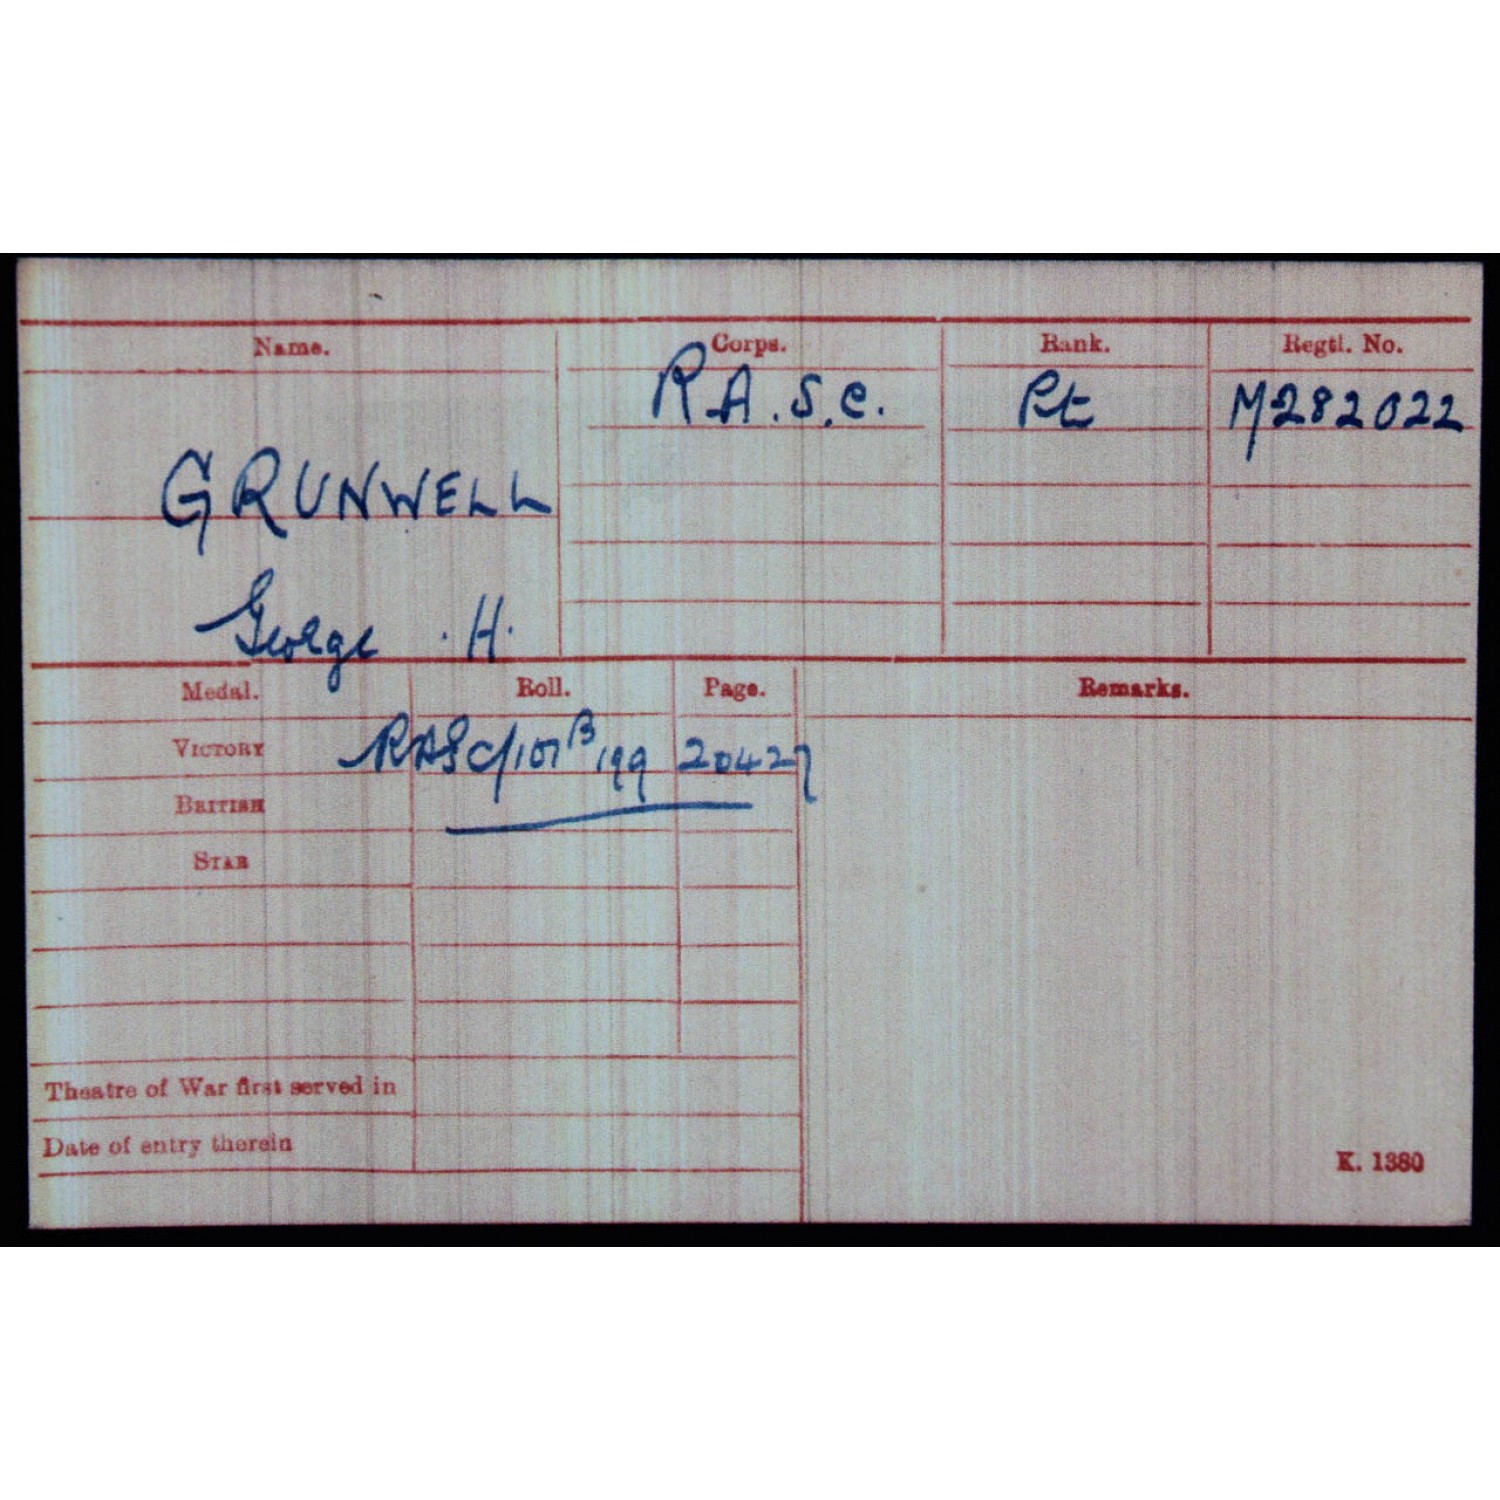 Name. Corps. Rank. Regtl. No.
R.A.S.C. Pt M282022
GRUNWELL
George . H.
Medal. Roll. Page. Remarks.
VICTORY RASC/101B199 20427
BRITISH
STAR
Theatre of War first served in
Date of entry therein
K. 1380